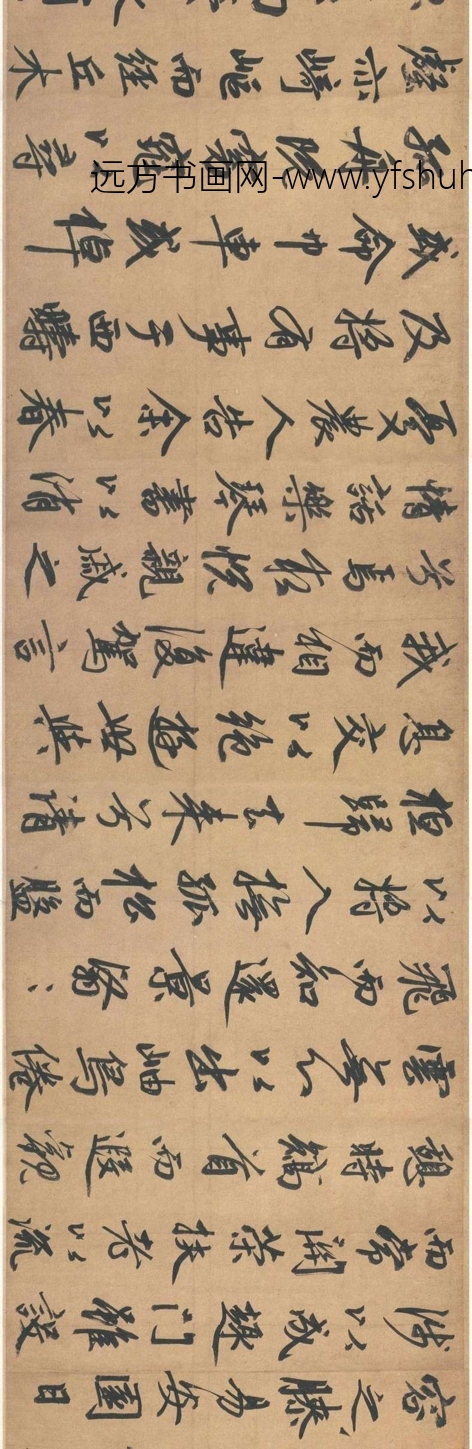 容之膝易安園日
涉以成趣門雖設
而常關策扶老以流
憩時矯首而遐觀
雲無心以出岫鳥倦
飛而知還景翳〻
以將入撫孤松而盤
桓歸去來兮請
息交以絕遊世與
我而相違復駕言
兮焉求悅親戚之
情話樂琴書以消
憂農人告余以春
及將有事于西疇
或命巾車或棹
孤舟既窈窕以尋
壑亦崎嶇而經丘木
远方书画网-www.yfshuh